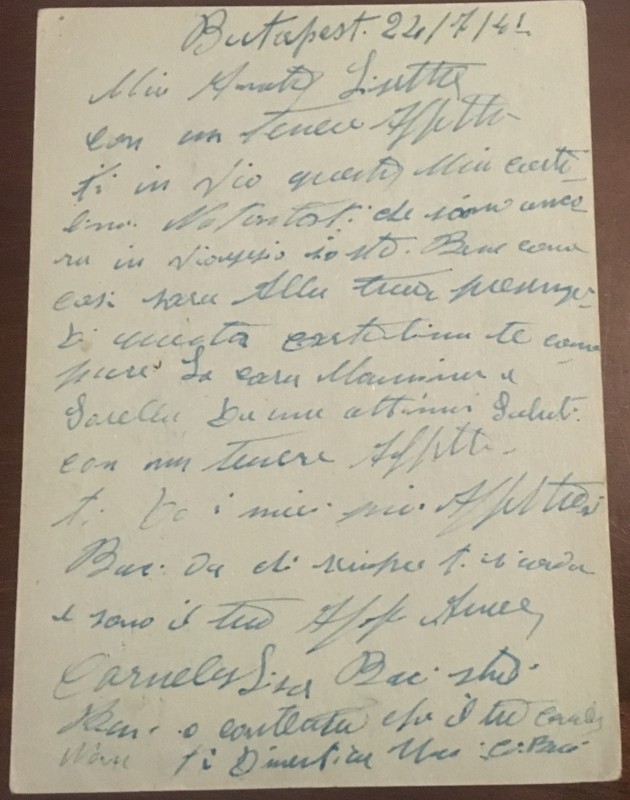 Butapest. 22/7/41
Mia Amata Lisetta
con un tenero Affetto
ti in vio questa Mia carto
lina. che sono anco
ra in viaggio io sto. Bene come
cosi sara Alla tua
di questa cartolina te come
pure La cara Mammina e
Sorella ottimi Saluti.
con un tenero Affetto.
ti Do i miei più Affettuosi
Baci Da chi sempre ti ricorda
e sono il tuo Aff
Carmelo Lisa Baci
o contenta che il tuo
Non ti Dimentica Mai